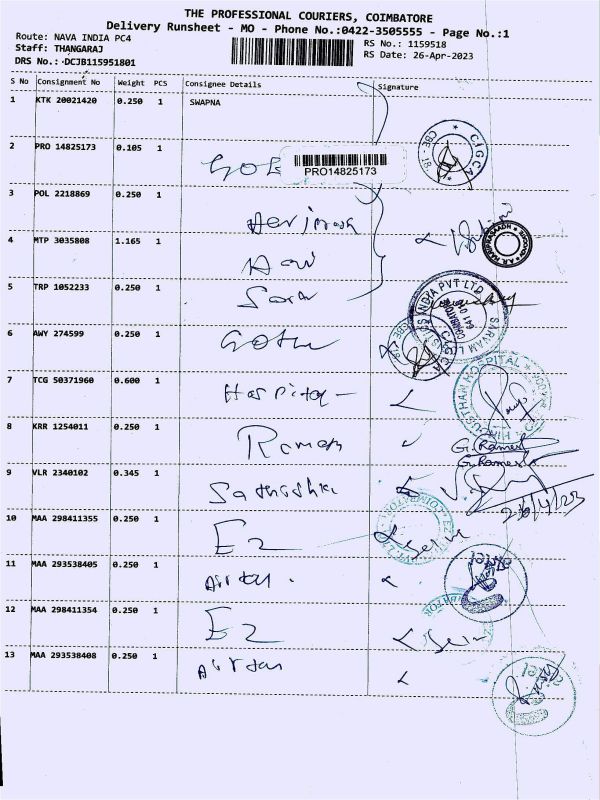 THE PROFESSIONAL COURIERS, COIMBATORE
Delivery Runsheet - MO - Phone No.:0422-3505555 - Page No.:1
Route: NAVA INDIA PC4
RS No.: 1159518
Staff: THANGARAJ
RS Date: 26-Apr-2023
DRS No.: DCJB115951801
S No Consignment No Weight PCS Consignee Details Signature
1 KTK 20021420 0.250 1 SWAPNA
2 PRO 14825173 0.105 1
PRO14825173
3 POL 2218869 0.250 1
4 MTP 3035808 1.165 1 Hari
5 TRP 1052233 0.250 1
6 AWY 274599 0.250 1
7 TCG 50371960 0.600 1 Hospital
8 KRR 1254011 0.250 1 Ramesh G. Ramesh
G. Ramesh
9 VLR 2340102 0.345 1
26/4/23
10 MAA 298411355 0.250 1 E2
11 MAA 293538405 0.250 1 Airtel
12 MAA 298411354 0.250 1 E2
13 MAA 293538408 0.250 1 Airtel